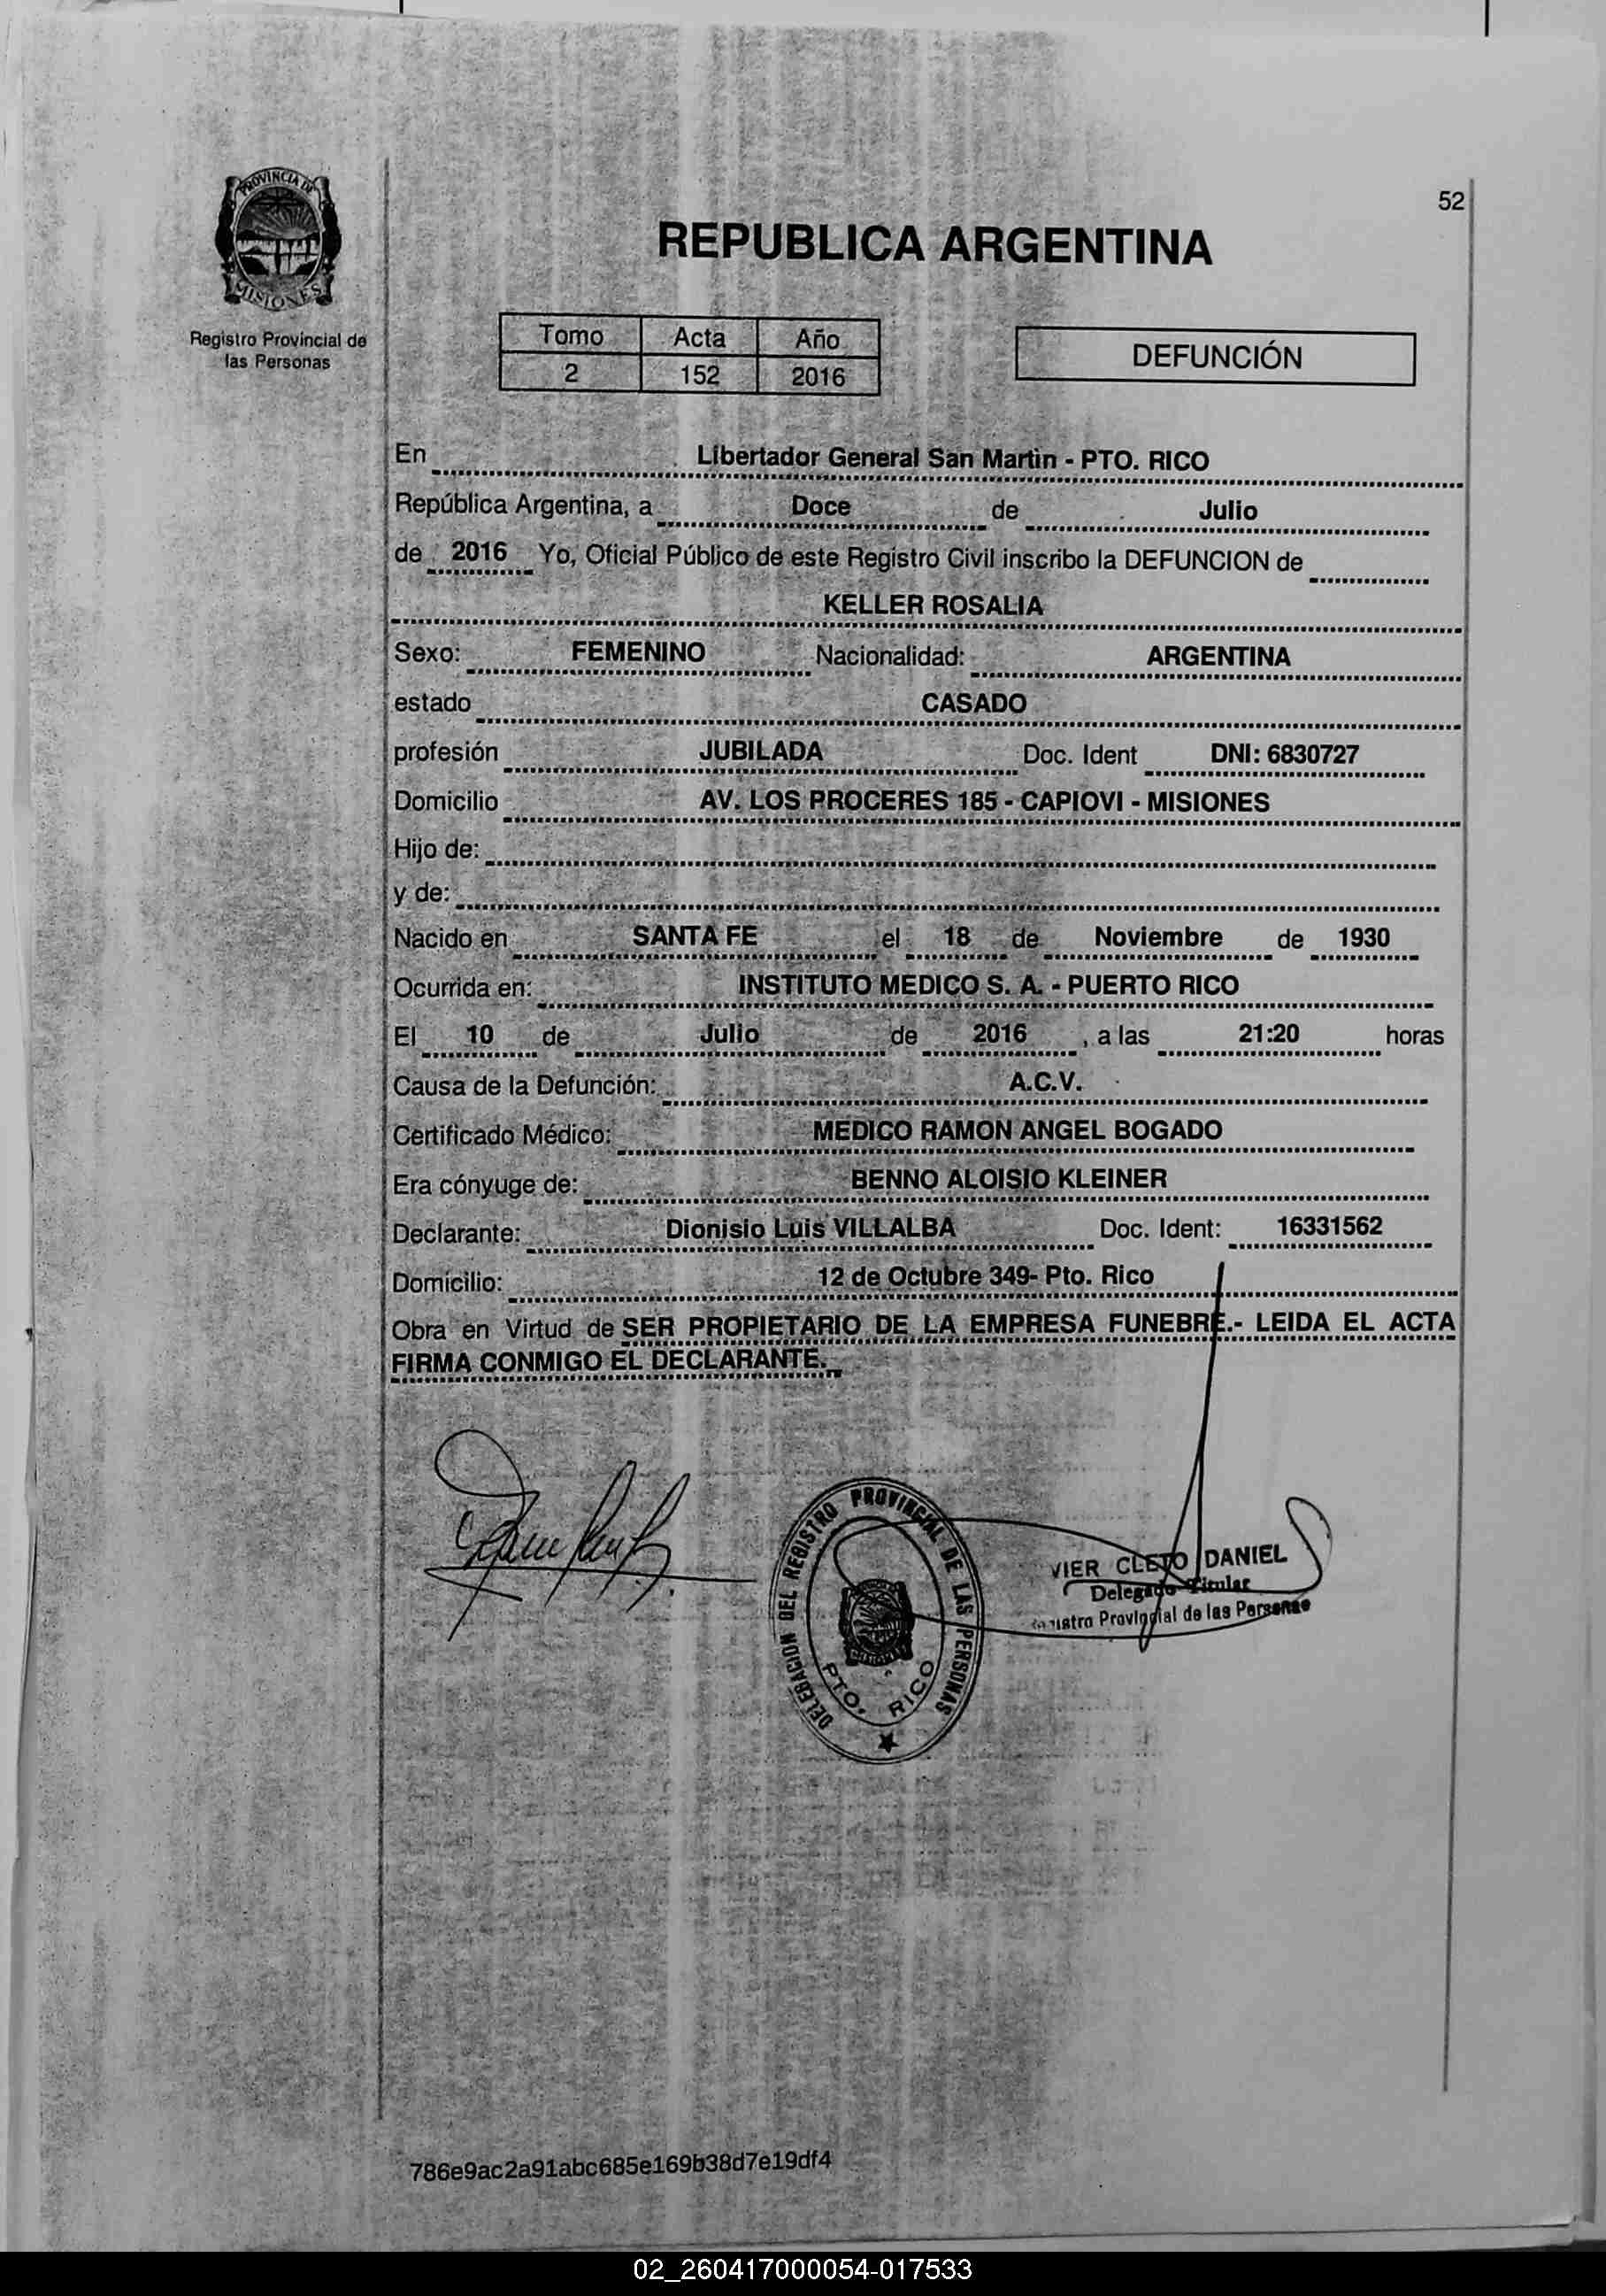 52
PROVINCIA DE
MISIONES
Registro Provincial de
las Personas
REPUBLICA ARGENTINA
Tomo Acta Año
2 152 2016
DEFUNCIÓN
En Libertador General San Martin - PTO. RICO
República Argentina, a Doce de Julio
de 2016 Yo, Oficial Público de este Registro Civil inscribo la DEFUNCION de
KELLER ROSALIA
Sexo: FEMENINO Nacionalidad: ARGENTINA
estado CASADO
profesión JUBILADA Doc. Ident DNI: 6830727
Domicilio AV. LOS PROCERES 185 - CAPIOVI - MISIONES
Hijo de:
y de:
Nacido en SANTA FE el 18 de Noviembre de 1930
Ocurrida en: INSTITUTO MEDICO S. A. - PUERTO RICO
El 10 de Julio de 2016 , a las 21:20 horas
Causa de la Defunción: A.C.V.
Certificado Médico: MEDICO RAMON ANGEL BOGADO
Era cónyuge de: BENNO ALOISIO KLEINER
Declarante: Dionisio Luis VILLALBA Doc. Ident: 16331562
Domicilio: 12 de Octubre 349- Pto. Rico
Obra en Virtud de SER PROPIETARIO DE LA EMPRESA FUNEBRE.- LEIDA EL ACTA
FIRMA CONMIGO EL DECLARANTE.
DELEGACION DEL REGISTRO PROVINCIAL DE LAS PERSONAS
PTO. RICO
VIER CLETO DANIEL
Delegado Titular
Provincial de las Personas
786e9ac2a91abc685e169b38d7e19df4
02_260417000054-017533